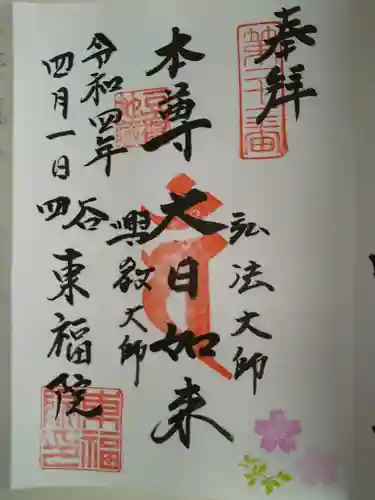 奉拝
弘法大師
本尊大日如来
興教大師
令和四年
四月一日
四谷東福院